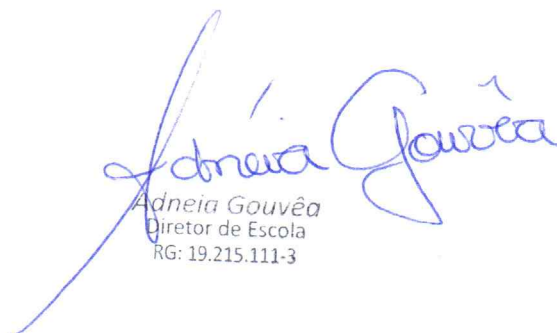 Adneia Gouvêa
Adneia Gouvêa
Diretor de Escola
RG: 19.215.111-3